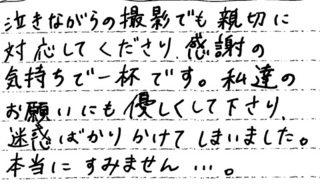 泣きながらの撮影でも親切に
対応してくださり、感謝の
気持ちで一杯です。私達の
お願いにも優しくして下さり、
迷惑ばかりかけてしまいました。
本当にすみません…。